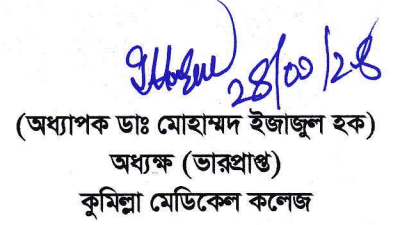 (অধ্যাপক ডাঃ মোহাম্মদ ইজাজুল হক)
অধ্যক্ষ (ভারপ্রাপ্ত)
কুমিল্লা মেডিকেল কলেজ